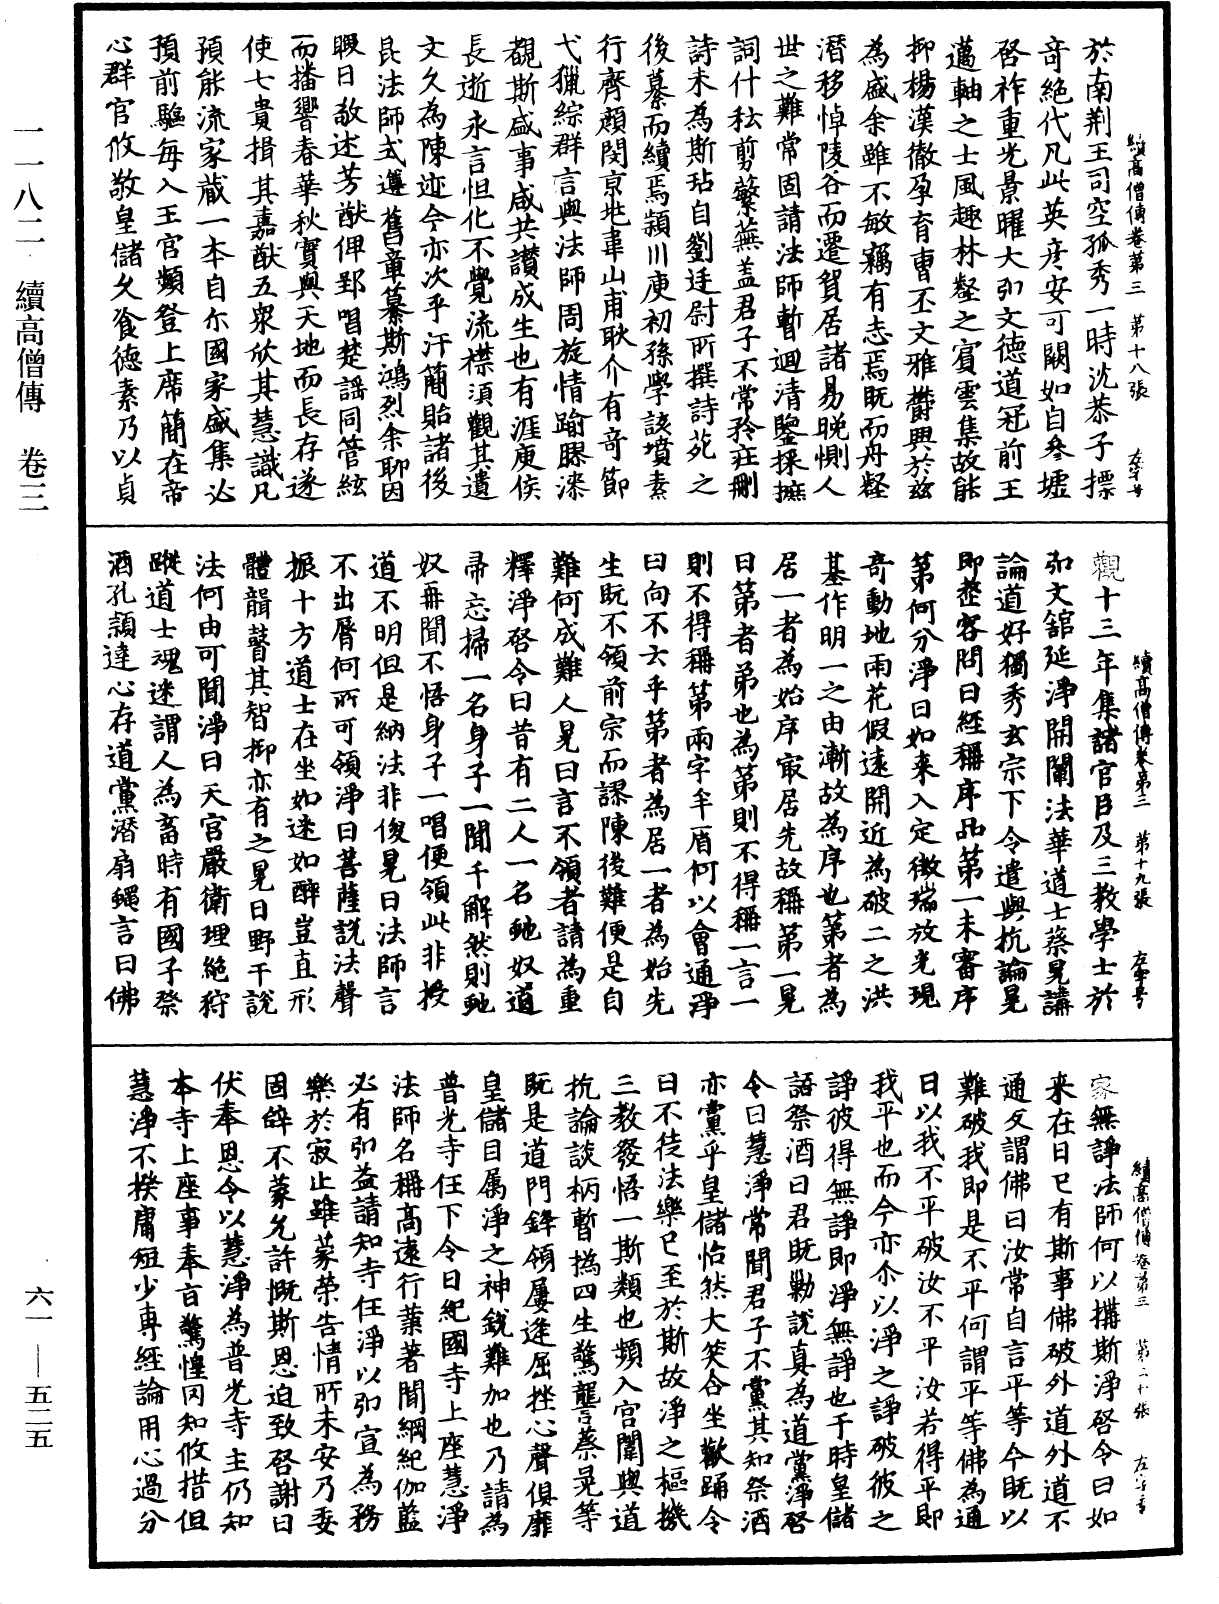 續高僧傳卷第三　第十八張　左字号
於南荆王司空孤秀一時沈恭子摽
竒絶代凡此英彦安可闕如自叅墟
啓祚重光景曜大弘文德道冠前王
邁軸之士風趣林壑之賓雲集故能
抑揚漢徹孕育曹丕文雅欝興於兹
為盛余雖不敏竊有志焉既而舟壑
潛移悼陵谷而遷貿居諸易晚惻人
世之難常固請法師暫迴清鑒採摭
詞什耘剪蘩蕪蓋君子不常矜莊刪
詩未為斯玷自劉廷尉所撰詩苑之
後纂而續焉潁川庾初孫學該墳素
行齊顔閔京兆韋山甫耿介有竒節
弋獵綜群言與法師周旋情踰膠漆
覩斯盛事咸共讃成生也有涯庾侯
長逝永言怛化不覺流襟須觀其遺
文久為陳迹今亦次乎汗簡貽諸後
昆法師式遵舊章纂斯鴻烈余聊因
暇日敬述芳猷俾郢唱楚謡同管絃
而播響春華秋實與天地而長存遂
使七貴揖其嘉猷五衆欣其慧識凡
預能流家藏一本自尒國家盛集必
預前驅每入王宫頻登上席簡在帝
心群官攸敬皇儲久飡德素乃以貞
續高僧傳卷第三　第十九張　左字号
觀十三年集諸官臣及三教學士於
弘文館延淨開闡法華道士蔡晃講
論道好獨秀玄宗下令遣與抗論晃
即整容問曰經稱序品第一未審序
第何分淨曰如来入定徵瑞放光現
竒動地雨花假遠開近為破二之洪
基作明一之由漸故為序也第者為
居一者為始序㝡居先故稱第一晃
曰第者弟也為第則不得稱一言一
則不得稱第兩字牟盾何以會通淨
曰向不云乎第者為居一者為始先
生既不領前宗而謬陳後難便是自
難何成難人晃曰言不領者請為重
釋淨啓令曰昔有二人一名虵奴道
帚忘掃一名身子一聞千解然則虵
奴再聞不悟身子一唱便領此非授
道不明但是納法非俊晃曰法師言
不出脣何所可領淨曰菩薩説法聲
振十方道士在坐如迷如醉豈直形
體聾瞽其智抑亦有之晃曰野干説
法何由可聞淨曰天宫嚴衛理絶狩
蹤道士魂迷謂人為畜時有國子祭
酒孔頴達心存道黨潛扇蠅言曰佛
續高僧傳卷第三　第二十張　左字号
家無諍法師何以搆斯淨啓令曰如
来在日已有斯事佛破外道外道不
通反謂佛曰汝常自言平等今既以
難破我即是不平何謂平等佛為通
曰以我不平破汝不平汝若得平即
我平也而今亦尒以淨之諍破彼之
諍彼得無諍即淨無諍也于時皇儲
語祭酒曰君既勦説真為道黨淨啓
令曰慧淨常聞君子不黨其知祭酒
亦黨乎皇儲怡然大笑合坐歡踊令
曰不徒法樂已至於斯故淨之樞機
三教發悟一斯類也頻入宫闈與道
抗論談柄暫撝四生驚聾蔡晃等
既是道門鋒領屢逢屈挫心聲俱靡
皇儲目属淨之神鋭難加也乃請為
普光寺任下令曰紀國寺上座慧淨
法師名稱高遠行業著聞綱紀伽藍
必有弘益請知寺任淨以弘宣為務
樂於寂止雖蒙榮告情所未安乃委
固辝不蒙允許慨斯恩迫致啓謝曰
伏奉恩令以慧淨為普光寺主仍知
本寺上座事奉旨驚惶罔知攸措但
慧淨不揆庸短少專經論用心過分
一一八二　續高僧傳　卷三
六一——五二五